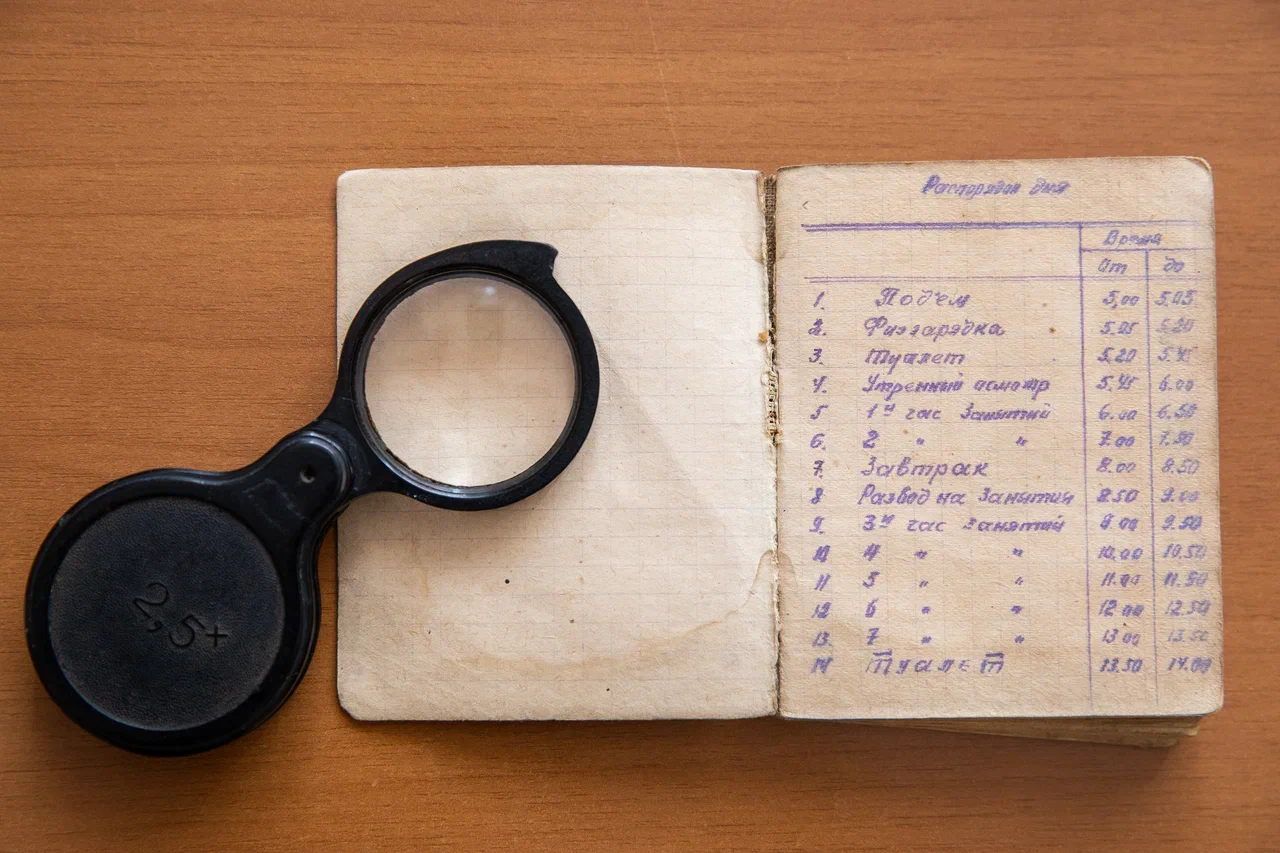 2,5+
Распорядок дня
Время
от до
1. Под'ем 5,00 5,05
2. Физзарядка 5,05 5,20
3. Туалет 5,20 5,45
4. Утренний осмотр 5,45 6.00
5 1й час Занятий 6.00 6.50
6. 2 " " 7.00 7.50
7. Завтрак 8.00 8.50
8 Развод на Занятия 8.50 9.00
9. 3й час Занятий 9.00 9.50
10 4 " " 10.00 10.50
11 5 " " 11.00 11.50
12 6 " " 12.00 12.50
13. 7 " " 13.00 13.50
14 Туалет 13.50 14.00